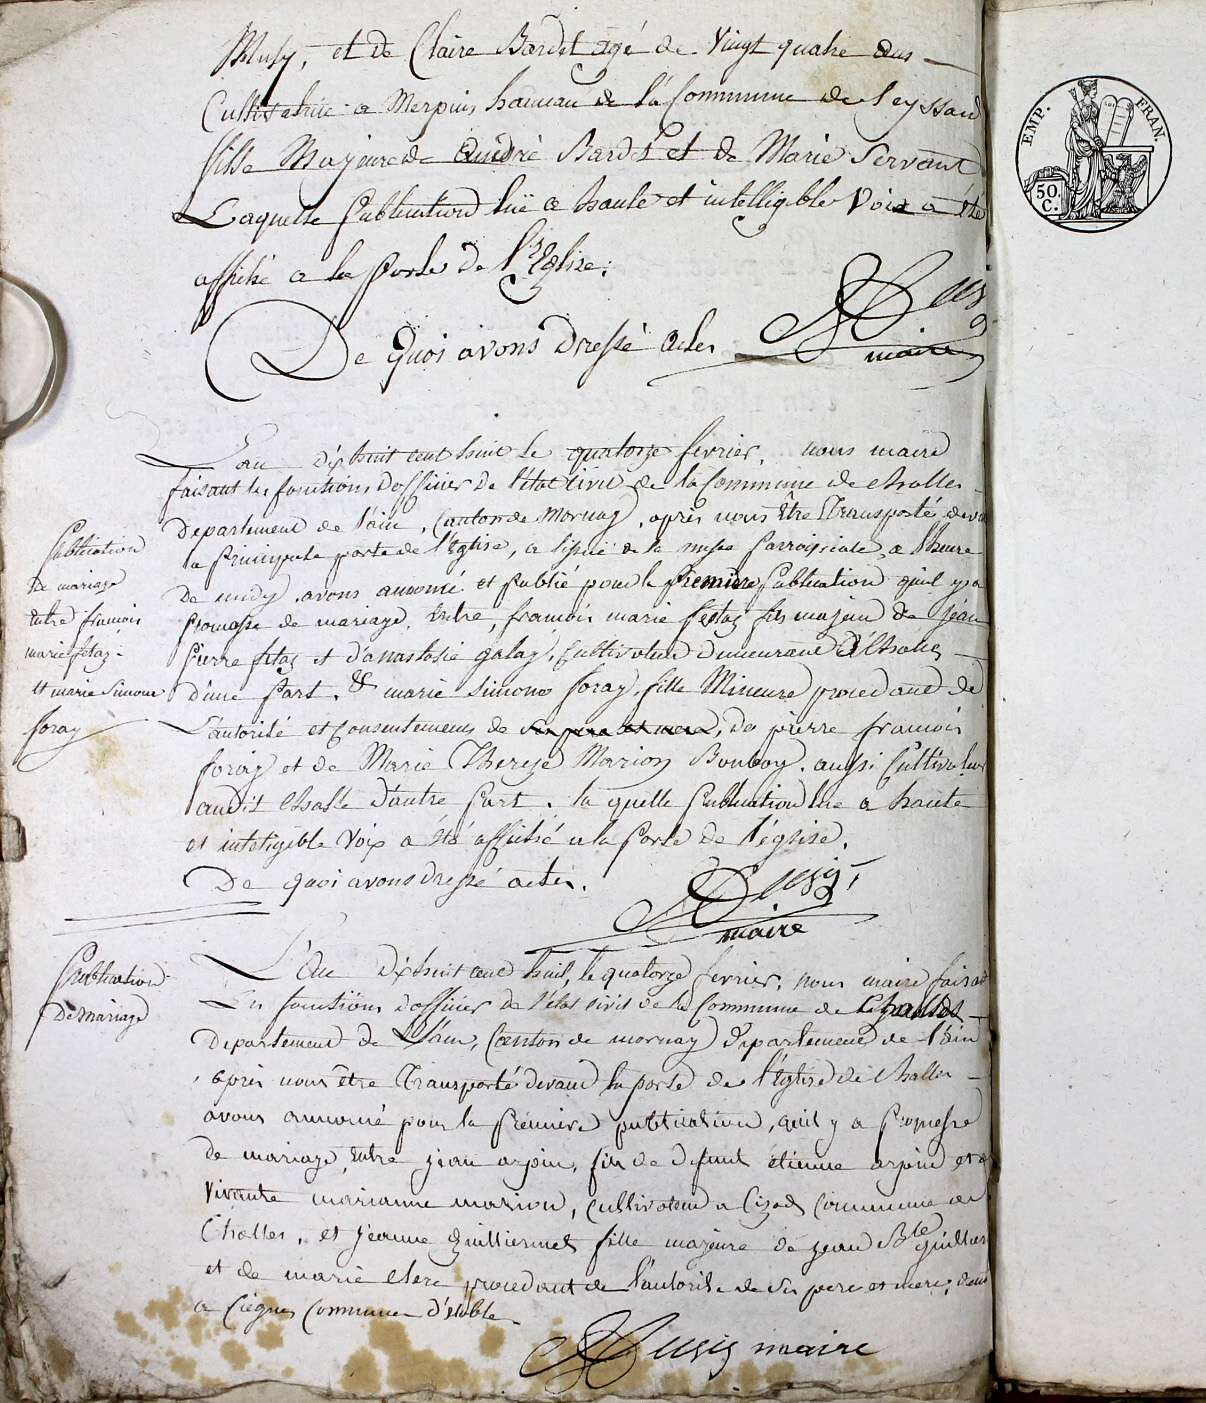 Musy, et de Claire Bardet agé de vingt quatre ans
Cultivatrice a Merpuis hameau de la Commune de Leyssard
fille Majeure de André Bardet et de Marie Servant
Laquelle Publication luë a haute et intelligible Voix a été
affiché a la Porte de l'Eglise;
De Quoi avons Dressé actes
Musy
maire
L'an dix huit cent huit le quatorze fevrier, nous maire
faisant les fonctions d'officier de l'état civil de la Commune de challes
Departement de l'ain, Canton de Mornay, après nous Être Transporté devant
la Principale porte de l'Eglise, a l'issuë de la messe Parroissiale, a l'heure
De midy, avons annoncé et Publié pour la Premiere Publication qu'il y a
Promesse de mariage, entre, francois marie fetaz fils majeur de jean
Pierre fetaz et d'anastasie galay, Cultivateur Demeurant à Challes
D'une Part, & marie Simone foray, fille Mineure procedant de
L'autorité et Consentements de ses pere et mere, de pierre francois
foray et de Marie Thereze Marion Bouboy, aussi Cultivateurs
audit Challe D'autre Part. la quelle Publication lue a haute
et inteligible Voix a été affiché a la Porte de l'église.
De quoi avons dressé actes.
Musy
maire
Publication
De mariage
entre francois
marie fetaz
et marie Simone
foray
L'An Dix huit cent huit, le quatorze fevrier, nous maire faisant
Les fonctions D'officier de l'état civil de la Commune de Challes
Departement de L'ain, Canton de mornay Departement de l'ain
après nous être Transporté devant la porte de l'Eglise de Challes
avons annoncé pour la Première publication, quil y a Promesse
de mariage, entre jean arpin, fils de defunt étienne arpin et de
Vivante marianne marion, cultivateur a Cizod Commune de
Challes, et jeanne Guillermet fille majeure de jean Bte guiller
et de marie Clerc procedant de l'autorité de ses pere et mere,
a Ciegnes Commune d'étable
Musy maire
Publication
De mariage
EMP. FRAN.
50
C.